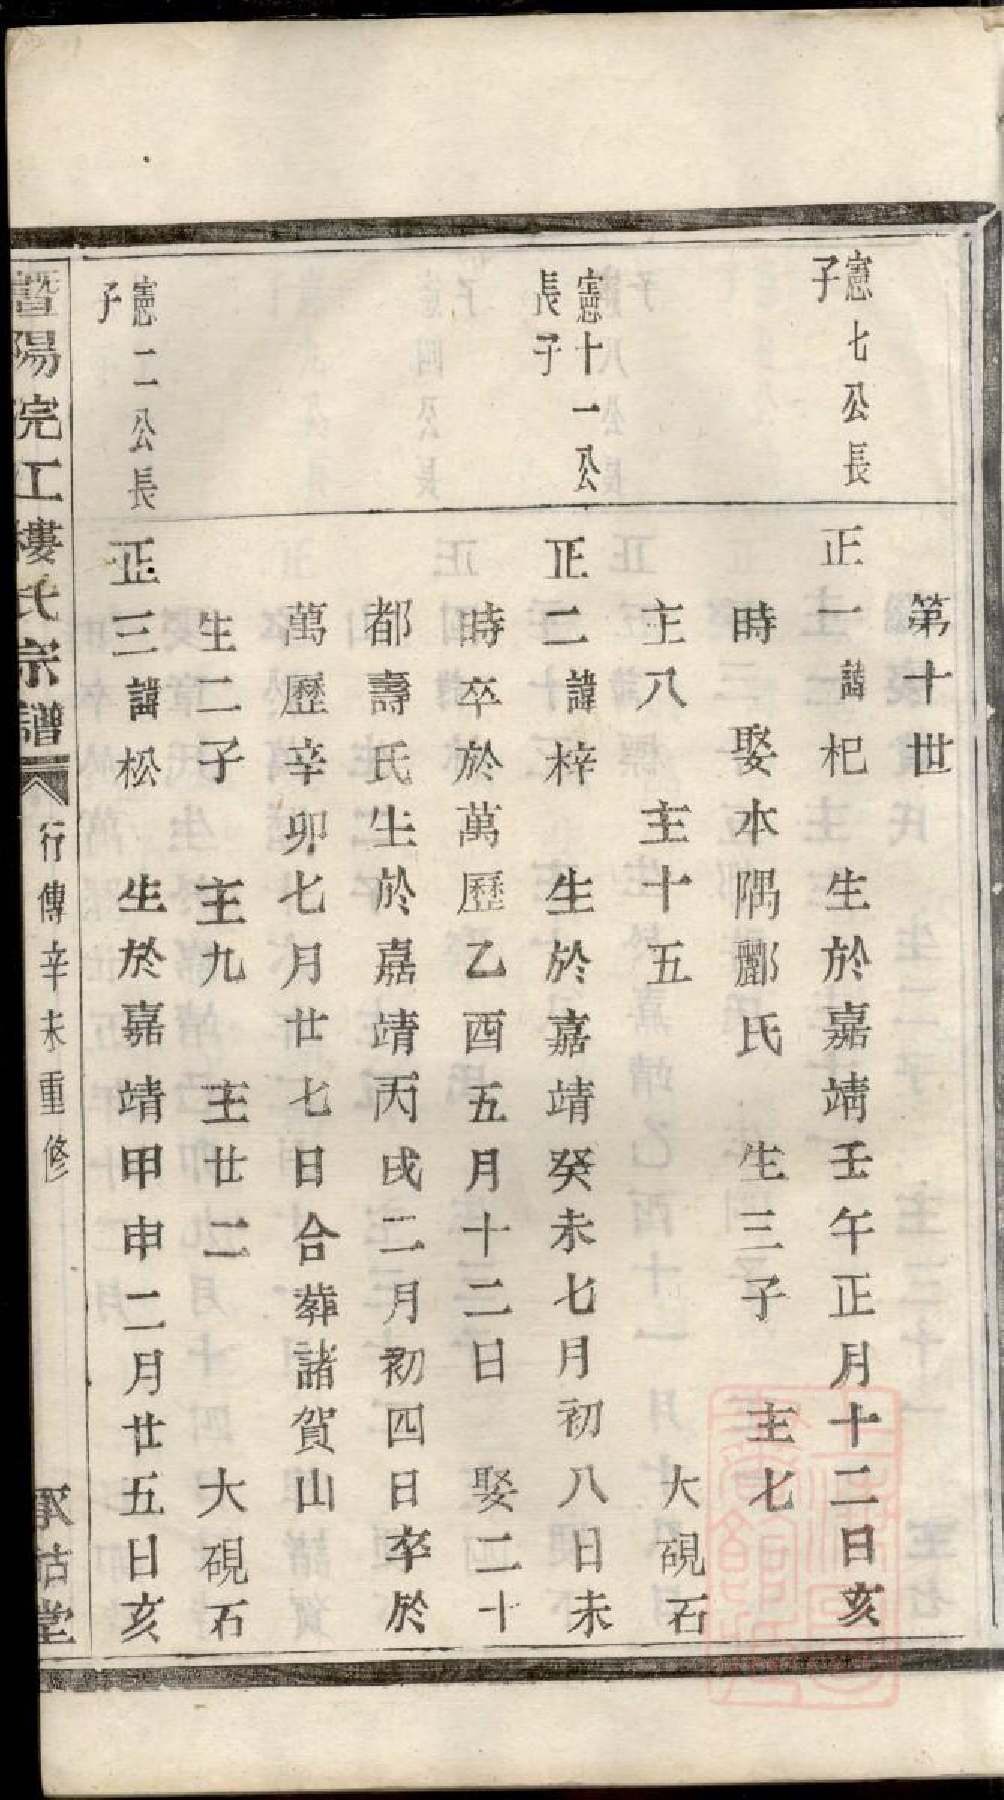 第十世
憲七公長
子
正一諱杞 生於嘉靖壬午正月十二日亥
時 娶本隅酈氏 生三子 主七
主八 主十五 大硯石
憲十一公
長子
正二諱梓 生於嘉靖癸未七月初八日未
時卒於萬歷乙酉五月十二日 娶二十
都壽氏生於嘉靖丙戌二月初四日卒於
萬歷辛卯七月廿七日合葬諸賀山
生二子 主九 主廿二 大硯石
憲二公長
子
正三諱松 生於嘉靖甲申二月廿五日亥
暨陽浣江樓氏宗譜
行傳辛未重修
承祜堂